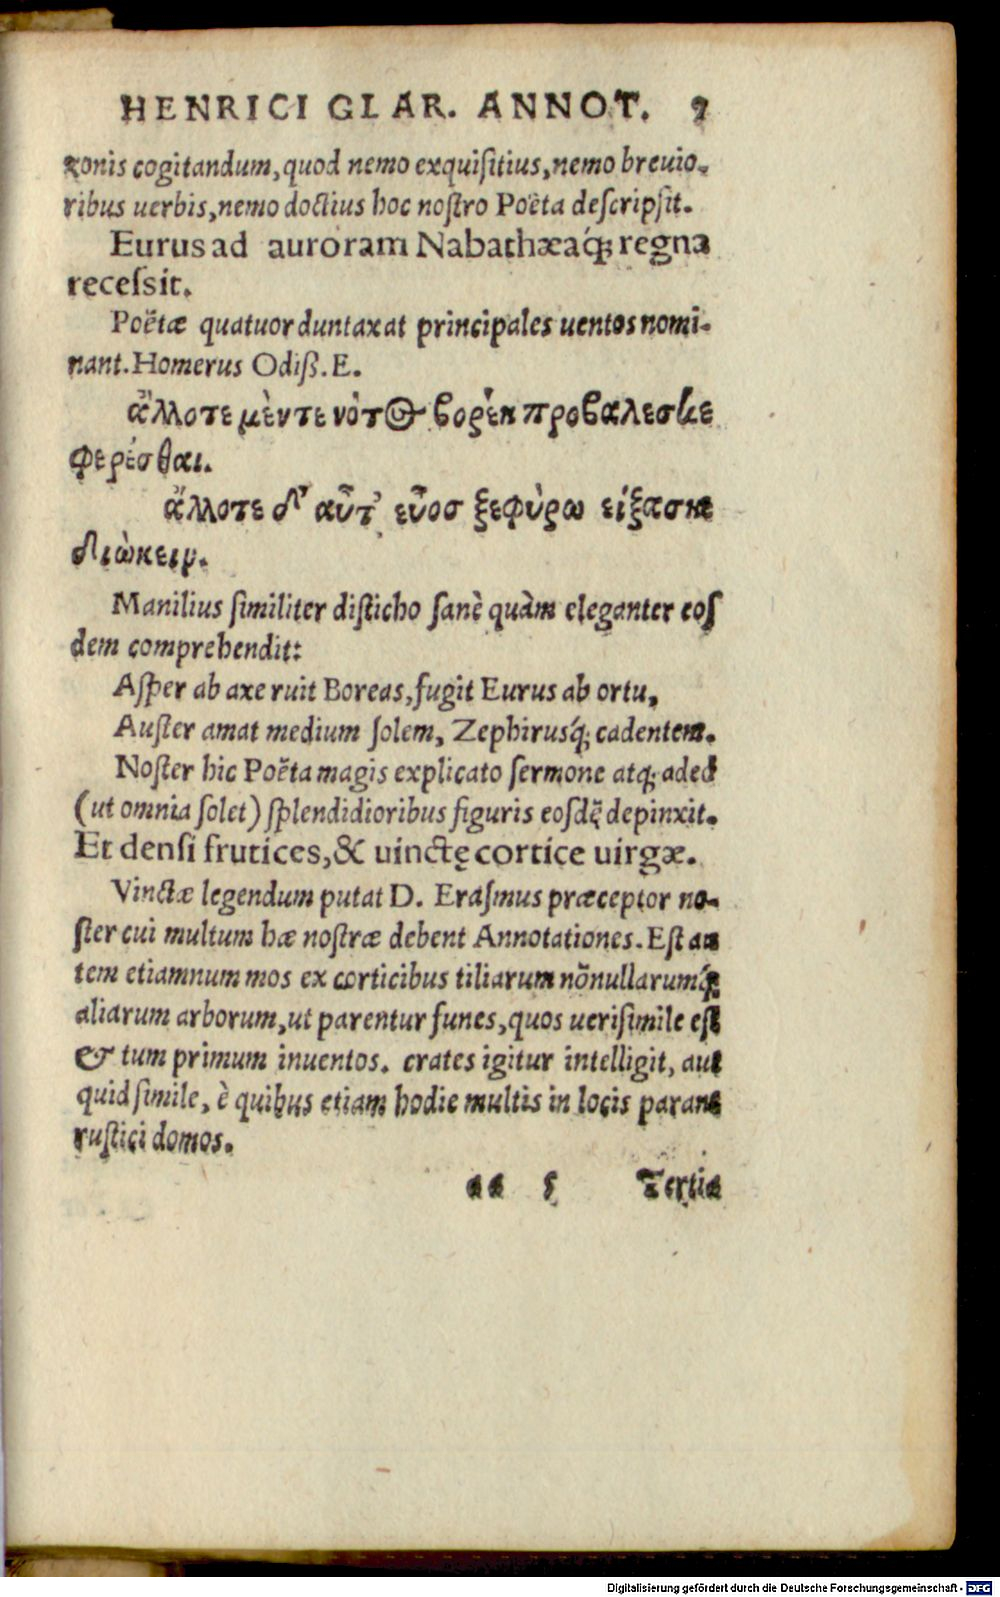 HENRICI GLAR. ANNOT. 9
xonis cogitandum, quod nemo exquiſitius, nemo breuio-
ribus uerbis, nemo doctius hoc noſtro Poëta deſcripſit.
Eurus ad auroram Nabathæaq́; regna
receſsit.
Poëtæ quatuor duntaxat principales uentos nomi-
nant. Homerus Odiſß. E.
ἄλλοτε μὲν τε νότος βορέη προβαλεσκε
φερέσθαι.
ἄλλοτε δ' αὖτ' εὖος ξεφύρω εἴξασκε
διώκειν.
Manilius ſimiliter diſticho ſanè quàm eleganter eoſ
dem comprehendit:
Aſper ab axe ruit Boreas, fugit Eurus ab ortu,
Auſter amat medium ſolem, Zephirusq́; cadentem.
Noſter hic Poëta magis explicato ſermone atq; adeo
(ut omnia ſolet) ſplendidioribus figuris eoſdẽ depinxit.
Et denſi frutices, & uinctę cortice uirgæ.
Vinctæ legendum putat D. Eraſmus præceptor no-
ſter cui multum hæ noſtræ debent Annotationes. Eſt au
tem etiamnum mos ex corticibus tiliarum nõnullarumq́;
aliarum arborum, ut parentur funes, quos ueriſimile eſt
& tum primum inuentos. crates igitur intelligit, aut
quid ſimile, è quibus etiam hodie multis in locis parant
ruſtici domos.
aa 5 Tertia
Digitalisierung gefördert durch die Deutsche Forschungsgemeinschaft - DFG